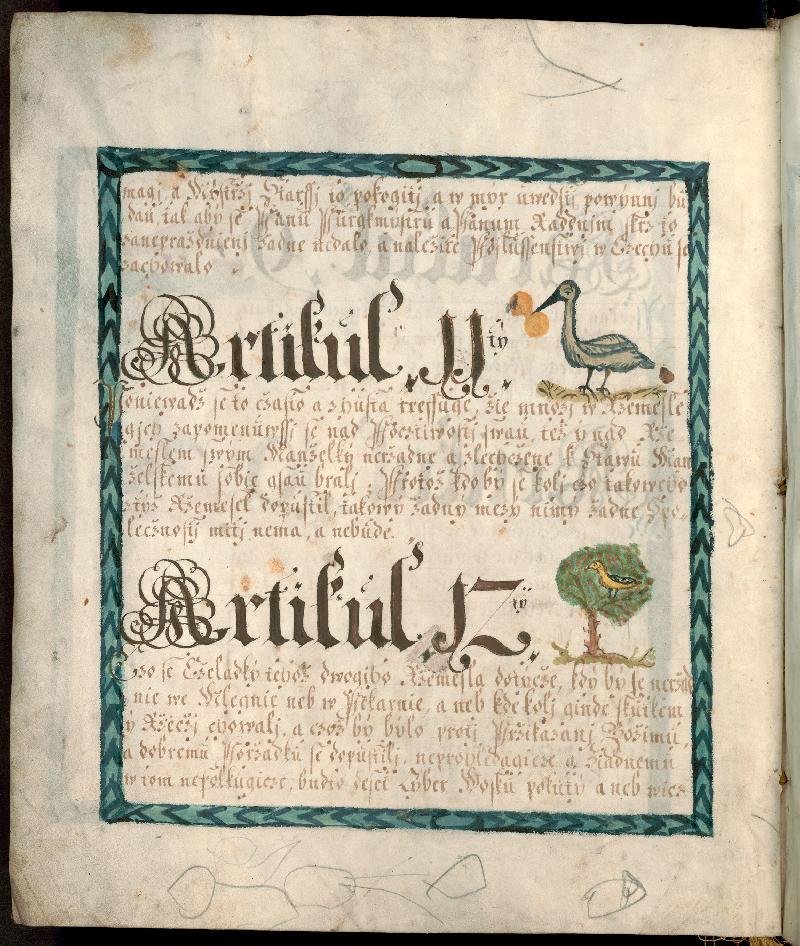 magj a Mistrzj Starssj to pokogitj, a w myr uwedsse powynnj bu
dau tak aby se Panu Purgkmystru a Panum Raddnjm skrz to
zaneprazdnienj zadne nedalo, a nalezite Poslussenstwj w Czechu se
zachowalo.
Artikul. 11tý.
Poniewadz se to czasto a zhusta treffuge, zie mnozj w Rzemesle
gjch zapomenuwssi se nad Poctiwostj swau, tez y nad Rze
meslem swym Manzelky nerzadne a zlechczene k Stawu Man
zelskemu sobie gsau bralj. Protoz kdo by se kolj czo takoweho
z tiyz Rzemesel dopustil, takowy zadny mezy nimy zadne Spo„
lecznostj mitj nema, a nebude.
Artikul. 12tý.
Czo se Czeladky tehoz dwogiho Rzemesla dotycze, kdy by se nerzad
nie we Mlegnie neb w Pekarnie, a neb kde kolj ginde skutkem
y Rzeczj chowalj, a czoz by bylo protj Przikazanj Bozimu,
a dobremu Porzadku se dopustilj, neprohledagicze a Ziadnemu
w tom nepolhugicze, budto Libru Wosku pokuty a neb wicz